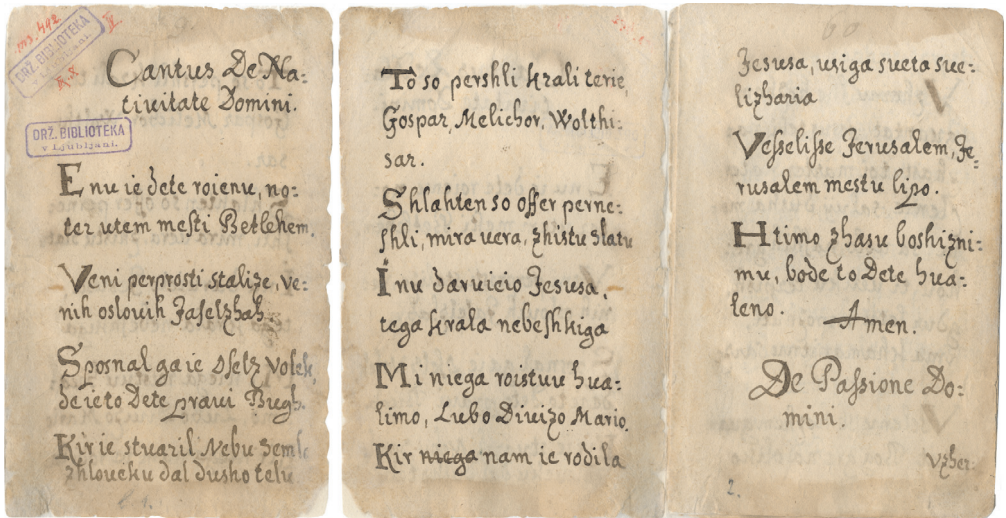 ms. 492
DRŽ. BIBLIOTEKA
v Ljubljani.
Cantus De Na:
tiuitate Domini.
DRŽ. BIBLIOTEKA
v Ljubljani.
Enu ie dete roienu, no:
ter utem mesti Betlehem.
Veni perprosti stalize, ve:
nih oslouih Jaselzhah.
Sposnal ga ie Oselz Volek,
de ie to Dete praui Bugh.
Kir ie stuaril Nebu Semle
zhloueku dal dusho telu
To so pershli krali terie,
Gospar, Melichor, Wolthi:
sar.
Shlahten so offer perne:
shli, mira uera, zhistu slatu
Inu daruieio Jesusa,
tega krala nebeshkiga
Mi niega roistuu hua:
limo, Lubo Diuizo Mario.
Kir niega nam ie rodila
60
Jesusa, usiga sueta sue:
lizharia
Vesselisse Jerusalem, Je:
rusalem mestu lipo.
H timo zhasu boshizni:
mu, bode to Dete hua:
leno.
Amen.
De Passione Do:
mini.
Vzher:
2.